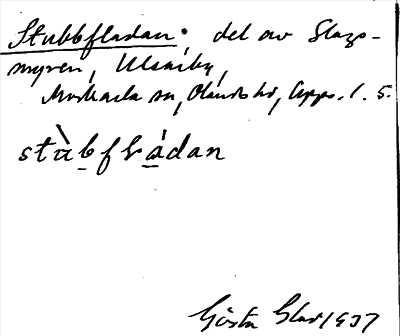 Stubbfladan. del av Slags-
myren, Ulsniby,
Morkarla sn, Olands hd, Upps. l. 5.
stu̇bfládan
Gösta Glas 1937